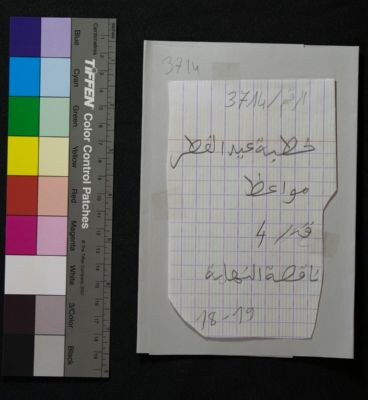 3714
الرقم/3714
خطبة عيد الفطر
مواعظ
ق/4
ناقصة النهاية
18-19
Inches
Centimetres
TIFFEN Color Control Patches
Blue
Cyan
Green
Yellow
Red
Magenta
White
3/Color
Black